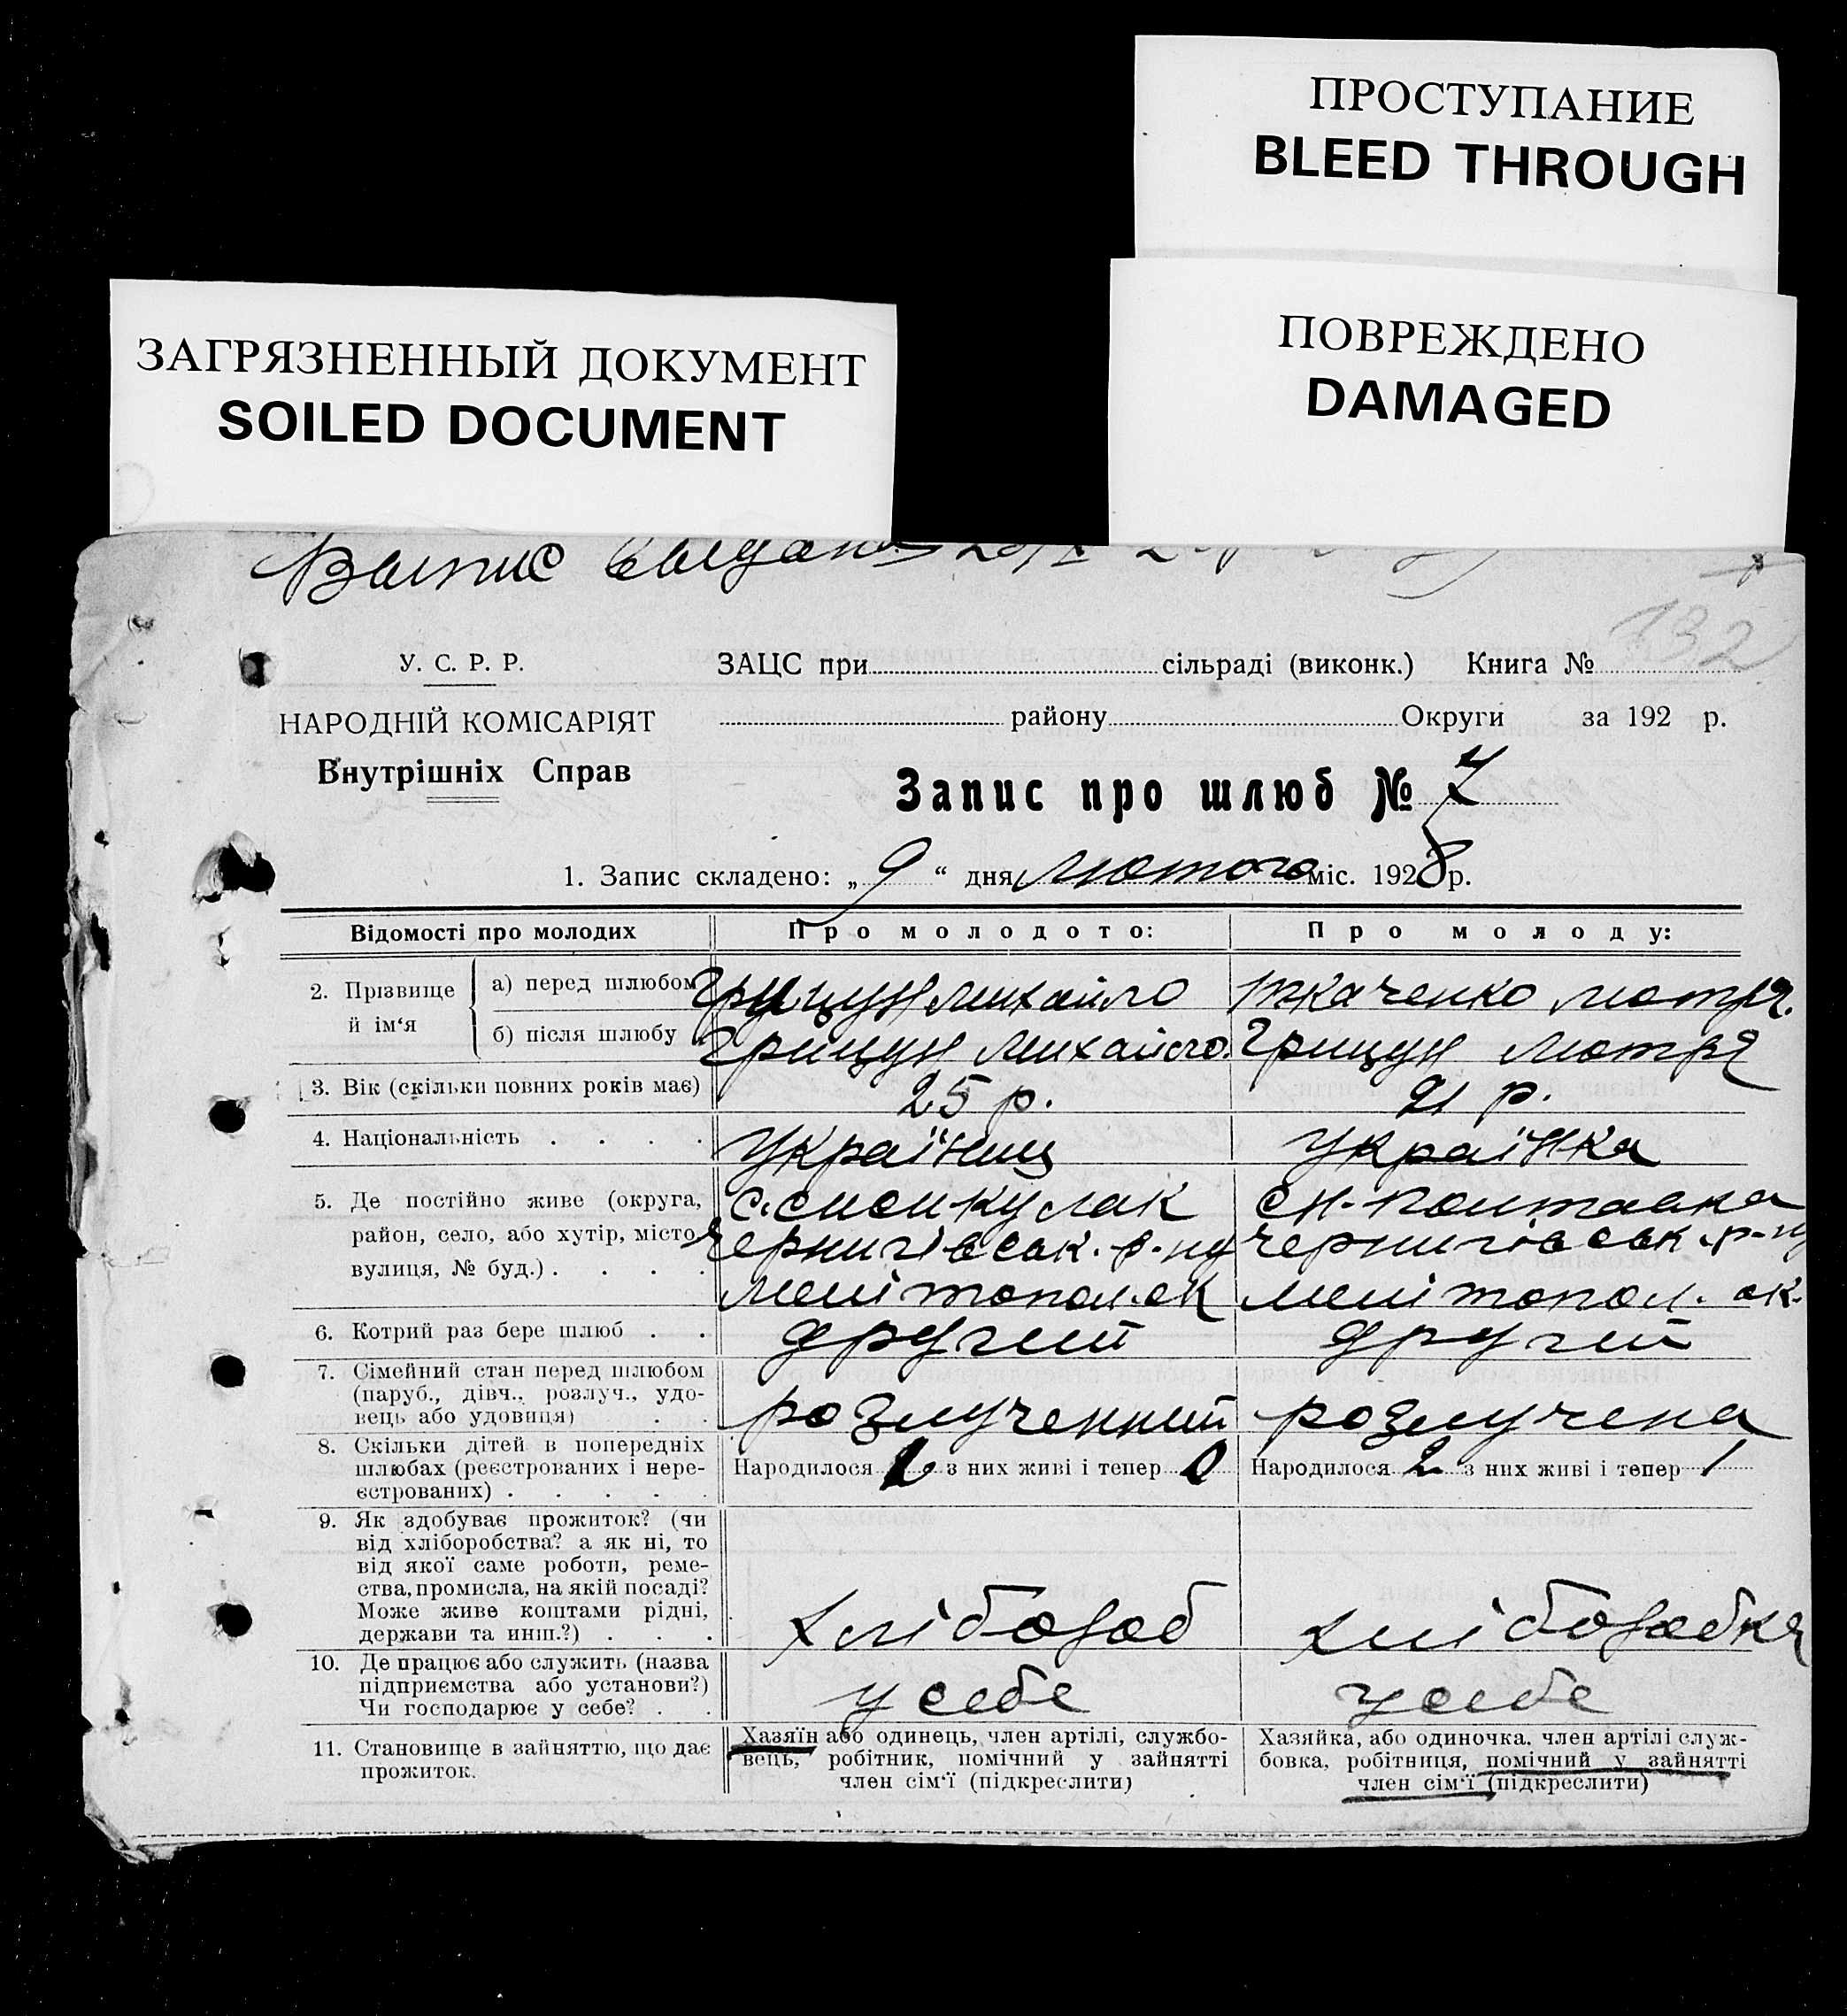 ПРОСТУПАНИЕ
BLEED THROUGH
ЗАГРЯЗНЕННЫЙ ДОКУМЕНТ
SOILED DOCUMENT
ПОВРЕЖДЕНО
DAMAGED
132
У. С. Р. Р.
НАРОДНІЙ КОМІСАРІЯТ
Внутрішніх Справ
ЗАЦС при сільраді (виконк.) Книга №
району Округи за 192 р.
Запис про шлюб № 7
1. Запис складено: „ 9 “ дня лютого міс. 1928 р.
Відомості про молодих Про молодого: Про молоду:
2. Прізвище й ім‘я
а) перед шлюбом Грицун Михайло Ткаченко Мотря.
б) після шлюбу Грицун Михайло. Грицун Мотря
3. Вік (скільки повних років має) 25 р. 21 р.
4. Національність . . . . Українц Українка
5. Де постійно живе (округа,
район, село, або хутір, місто
вулиця, № буд.) . . . .
Чернигівськ. р-ну
Меніtопол. ок
Чернигівськ. р-ну
Меліtопол. ок.
6. Котрий раз бере шлюб . . другий другий
7. Сімейний стан перед шлюбом
(паруб., дівч., розлуч., удо-
вець або удовиця) . . розлученний розлучена
8. Скільки дітей в попередніх
шлюбах (реєстрованих і нере-
єстрованих) . . . . .
Народилося з них живі і тепер 0
Народилося 2 з них живі і тепер 1
9. Як здобуває прожиток? (чи
від хліборобства? а як ні, то
від якої саме роботи, реме-
ства, промисла, на якій посаді?
Може живе коштами рідні,
держави та инш.?) . . . хлібороб хліборобка
10. Де працює або служить (назва
підприємства або установи?)
Чи господарює у себе? . . у себе у себе
11. Становище в зайняттю, що дає
прожиток.
Хазяїн або одинець, член артілі, службо-
вець, робітник, помічний у зайнятті
член сім‘ї (підкреслити)
Хазяйка, або одиночка. член артілі служ-
бовка, робітниця, помічний у зайнятті
член сім‘ї (підкреслити)